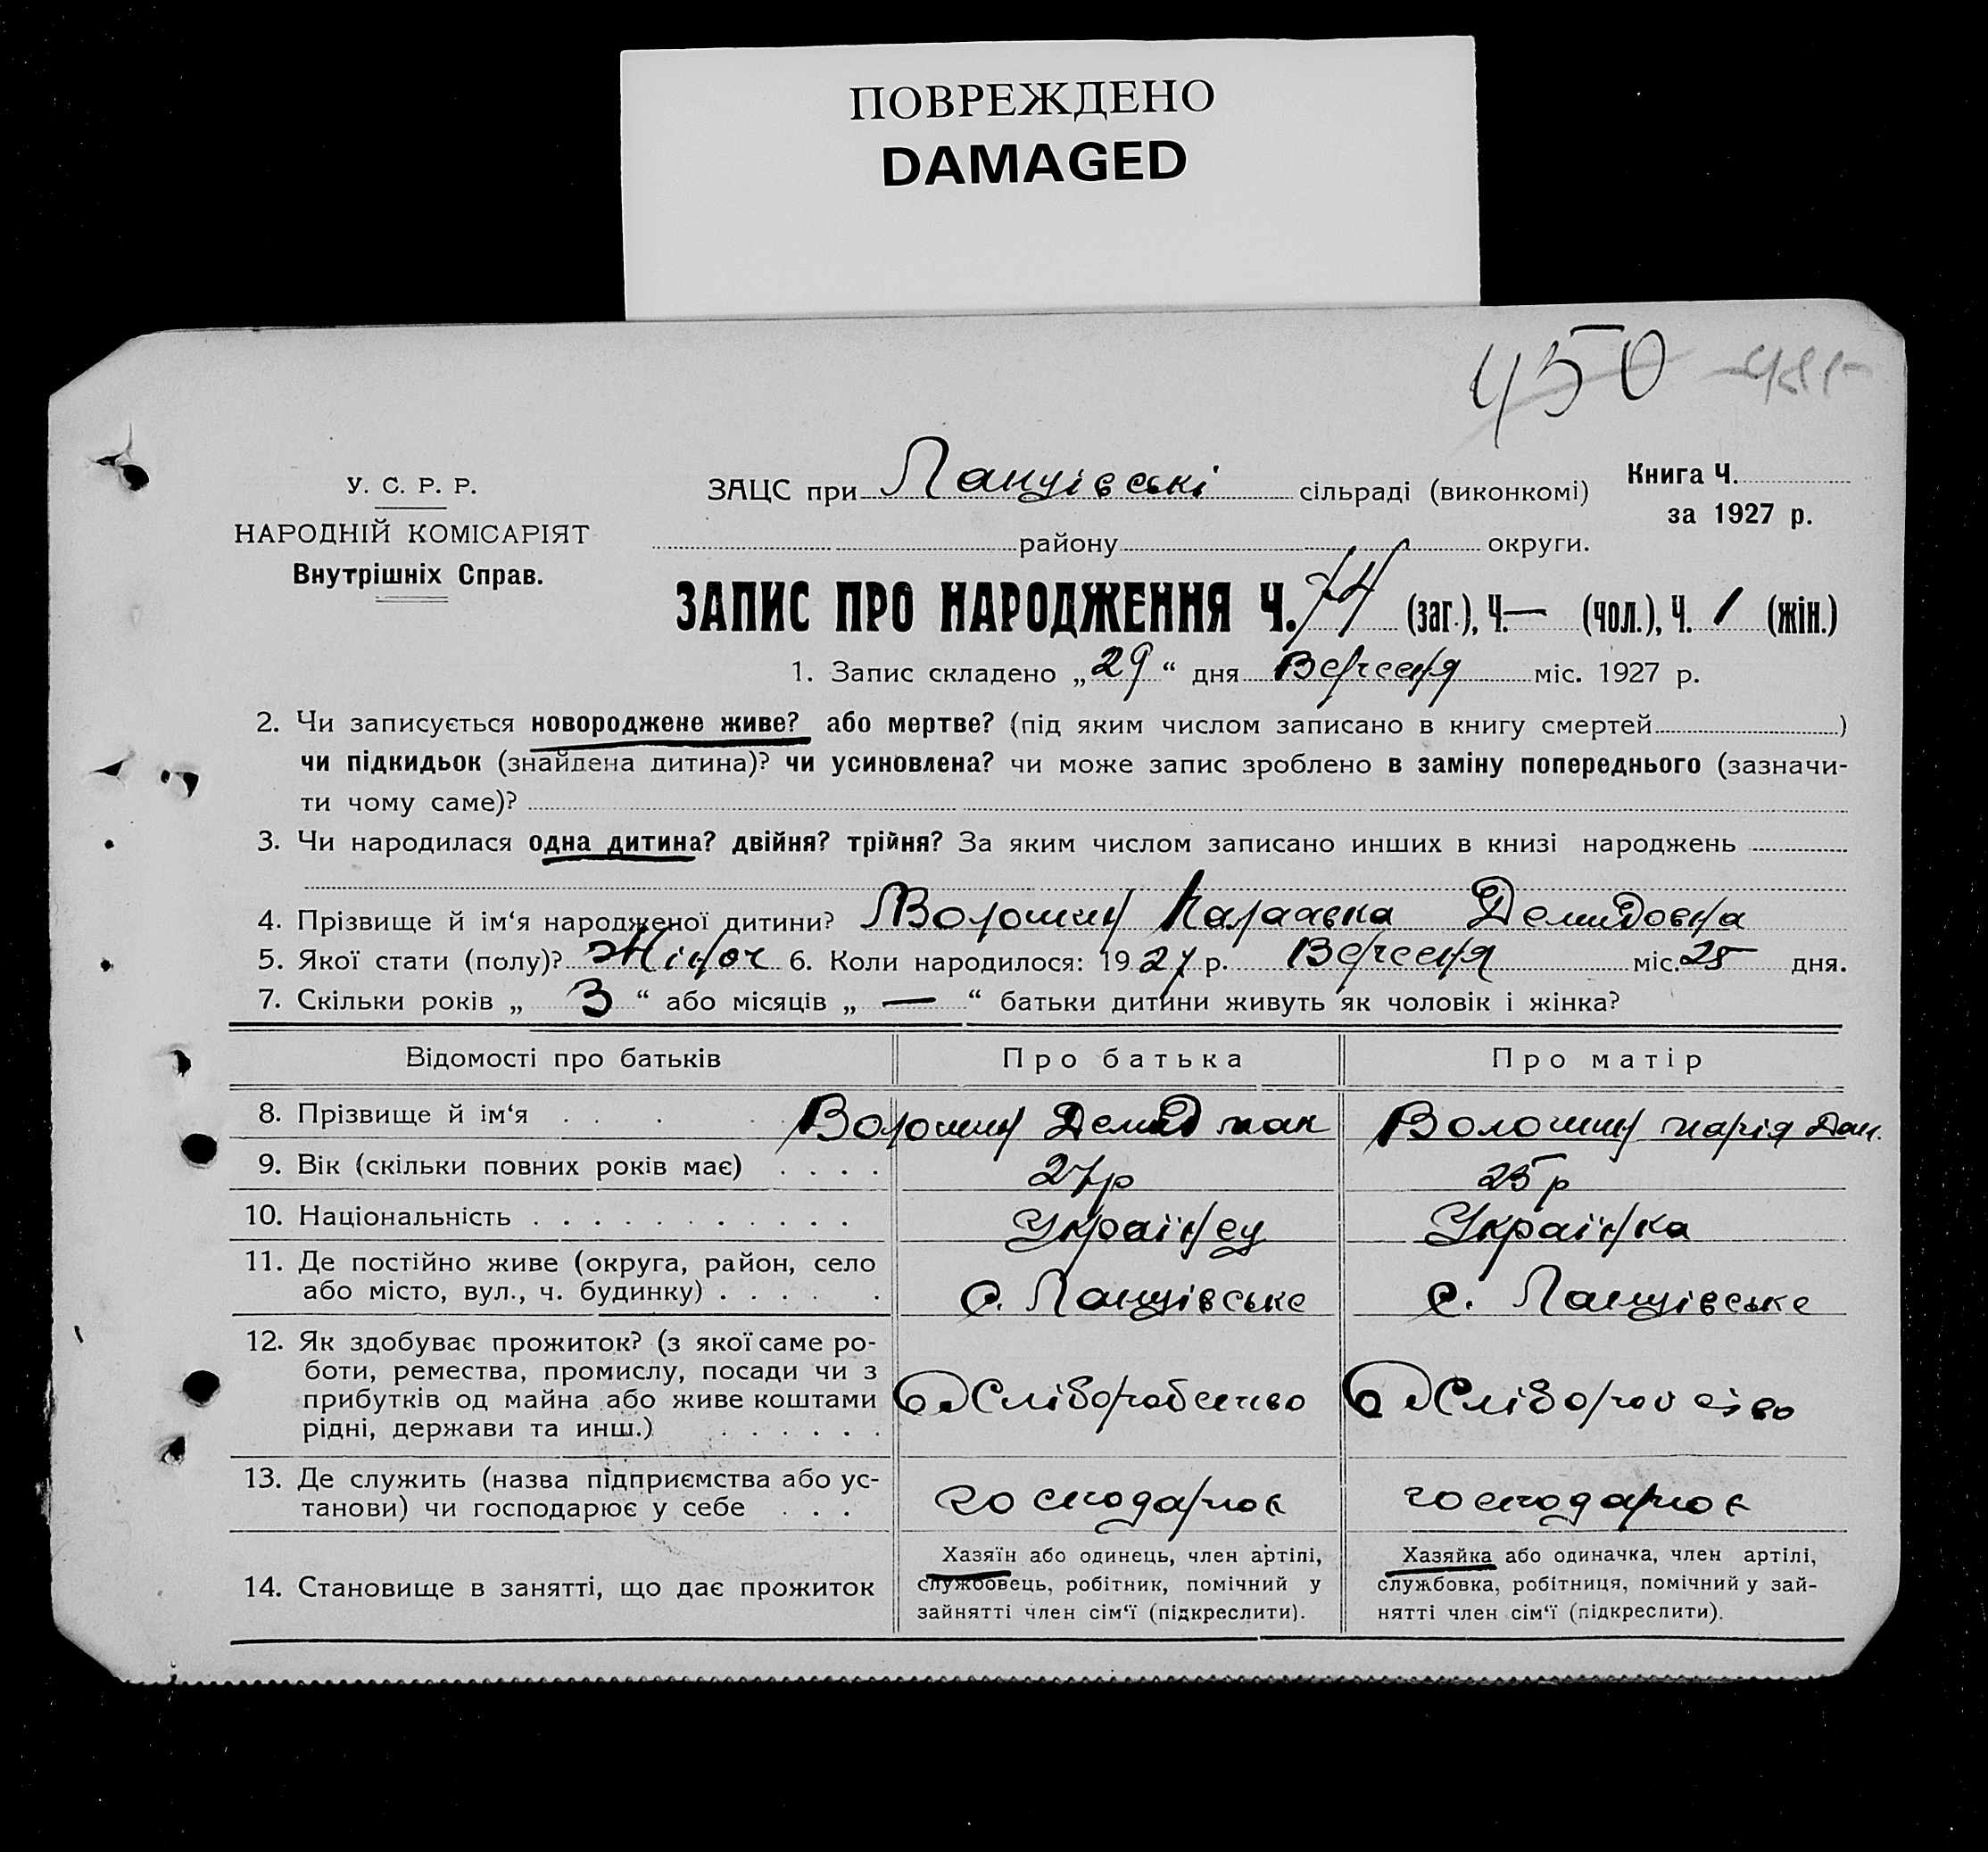 ПОВРЕЖДЕНО
DAMAGED
450
У. С. Р. Р.
НАРОДНІЙ КОМІСАРІЯТ
Внутрішніх Справ.
ЗАЦС при Ланцівські сільраді (виконкомі)
Книга Ч.
за 1927 р.
району округи.
ЗАПИС ПРО НАРОДЖЕННЯ Ч. 74 (заг.), Ч. — (чол.), Ч. 1 (жін.)
1. Запис складено „29“ дня Вересня міс. 1927 р.
2. Чи записується новороджене живе? або мертве? (під яким числом записано в книгу смертей )
чи підкидьок (знайдена дитина)? чи усиновлена? чи може запис зроблено в заміну попереднього (зазначи-
ти чому саме)?
3. Чи народилася одна дитина? двійня? трійня? За яким числом записано инших в книзі народжень
4. Прізвище й ім‘я народженої дитини? Волошин Параавка Демидовна
5. Якої стати (полу)? Жіноч 6. Коли народилося: 1927 р. Вересня міс. 25 дня.
7. Скільки років „ 3 “ або місяців „ — “ батьки дитини живуть як чоловік і жінка?
Відомості про батьків Про батька Про матір
8. Прізвище й ім‘я . . . Волошин Демид Волошин Марія Дан.
9. Вік (скільки повних років має) . . . . 27р 25р
10. Національність . . . . . . . . . . . Українец Українка
11. Де постійно живе (округа, район, село
або місто, вул., ч. будинку) . . . . . с. Ланцівське с. Ланцівське
12. Як здобуває прожиток? (з якої саме ро-
боти, ремества, промислу, посади чи з
прибутків од майна або живе коштами
рідні, держави та инш.) . . . . . . Хліборобство Хліборобство
13. Де служить (назва підприємства або ус-
танови) чи господарює у себе . . . господарює господарює
14. Становище в занятті, що дає прожиток
Хазяїн або одинець, член артілі,
службовець, робітник, помічний у
зайнятті член сім‘ї (підкреслити).
Хазяйка або одиначка, член артілі,
службовка, робітниця, помічний у зай-
нятті член сім‘ї (підкреслити).